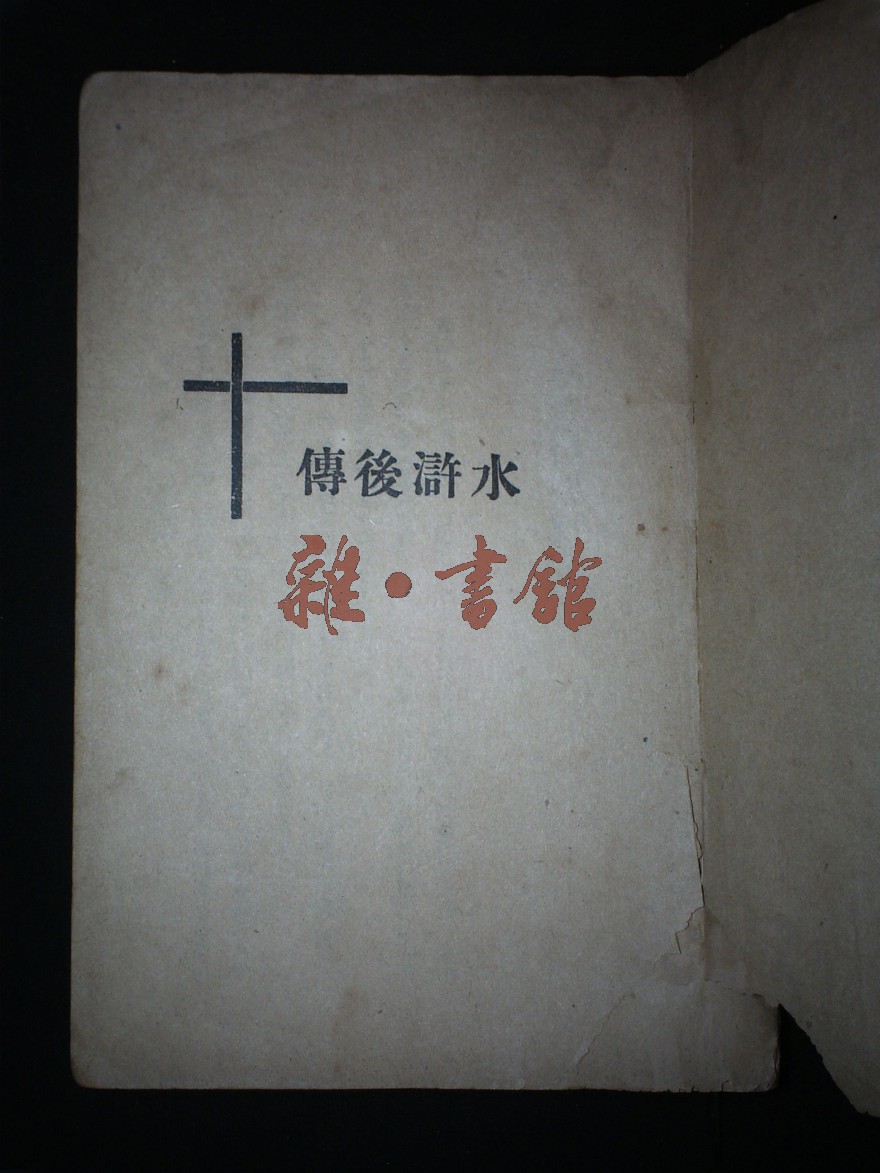 水滸後傳
雜·書館